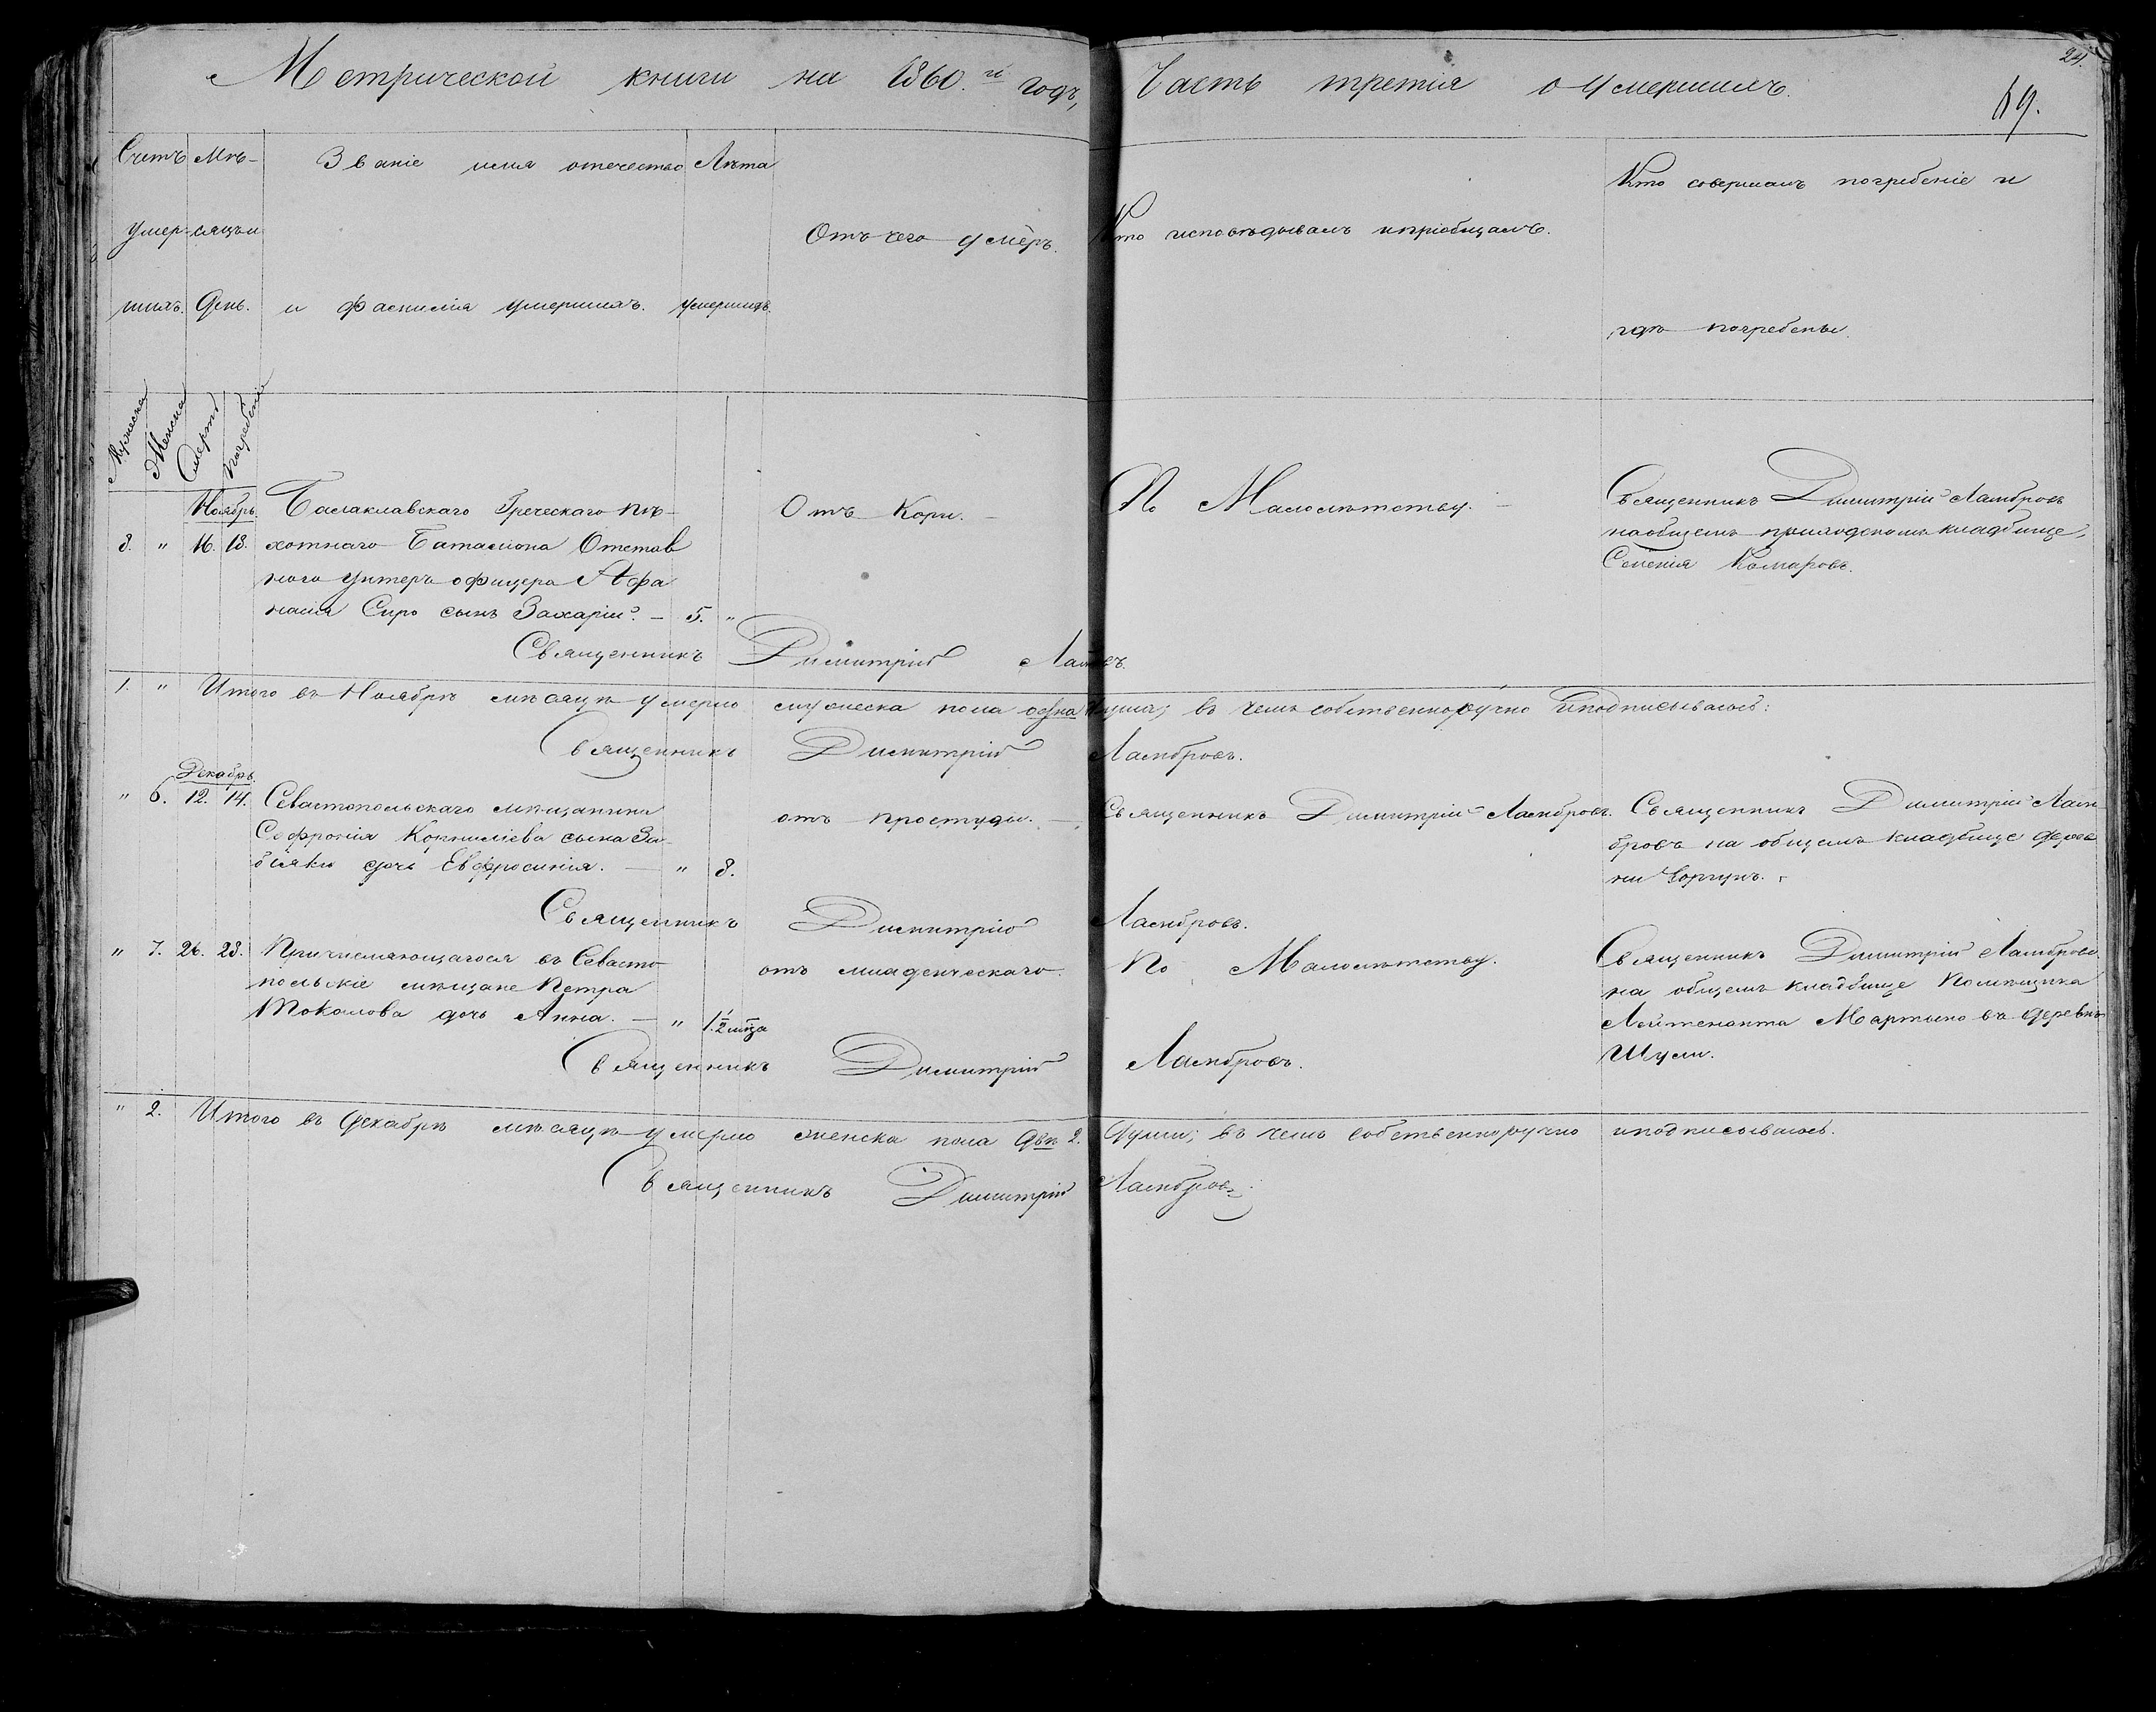 Метрической книги на 1860.й годъ, Часть третія о умершихъ.
24.
69.
Счетъ Мѣ- Званіе имя отечество Лѣта
Кто совершалъ погребеніе и
умер- сяцъ и Отъ чего умеръ. Кто исповѣдывалъ и пріобщалъ.
шихъ. День. и Фамилія умершихъ. умершихъ.
гдѣ погребены.
Мужеска Женска Смерти Погребенія
Ноябрь. Балаклавскаго Греческаго пѣ- Отъ Кори. — По Малолѣтству. — Священникъ Димитрій Ламбровъ
8. " 16. 18. хотнаго Баталіона Отстав на общемъ приходскомъ кладбище,
ного унтеръ офицера Афа Селенія Комаровъ.
насія Сиро сынъ Захарій. — 5. "
Священникъ Димитрій Ламбровъ.
1. " Итого въ Ноябрѣ мѣсяцѣ умерло мужеска пола одна душа; въ чемъ собственноручно и подписываюсь:
Священникъ Димитрій Ламбровъ.
Декабрь.
" 6. 12. 14. Севастопольскаго мѣщанина отъ простуды. — Священникъ Димитрій Ламбровъ. Священникъ Димитрій Лам
Софронія Корниліева сына За- бровъ на общемъ кладбище дерев
біяки дочь Евфросинія. — " 8. ни Чоргунъ.
Священникъ Димитрій Ламбровъ.
" 7. 26. 28. Причисляющагося въ Севасто отъ младенческаго. По Малолѣтству. Священникъ Димитрій Ламбровъ
польскіе мѣщане Петра на общемъ кладбище Помѣщика
Токолова дочь Анна. — " 1. 1/2 мѣца Лейтенанта Мартыно въ деревнѣ
Священникъ Димитрій Ламбровъ. Шули.
" 2. Итого въ Декабрѣ мѣсяцѣ умерло женска пола двѣ 2. души; въ чемъ собственноручно и подписываюсь.
Священникъ Димитрій Ламбровъ.